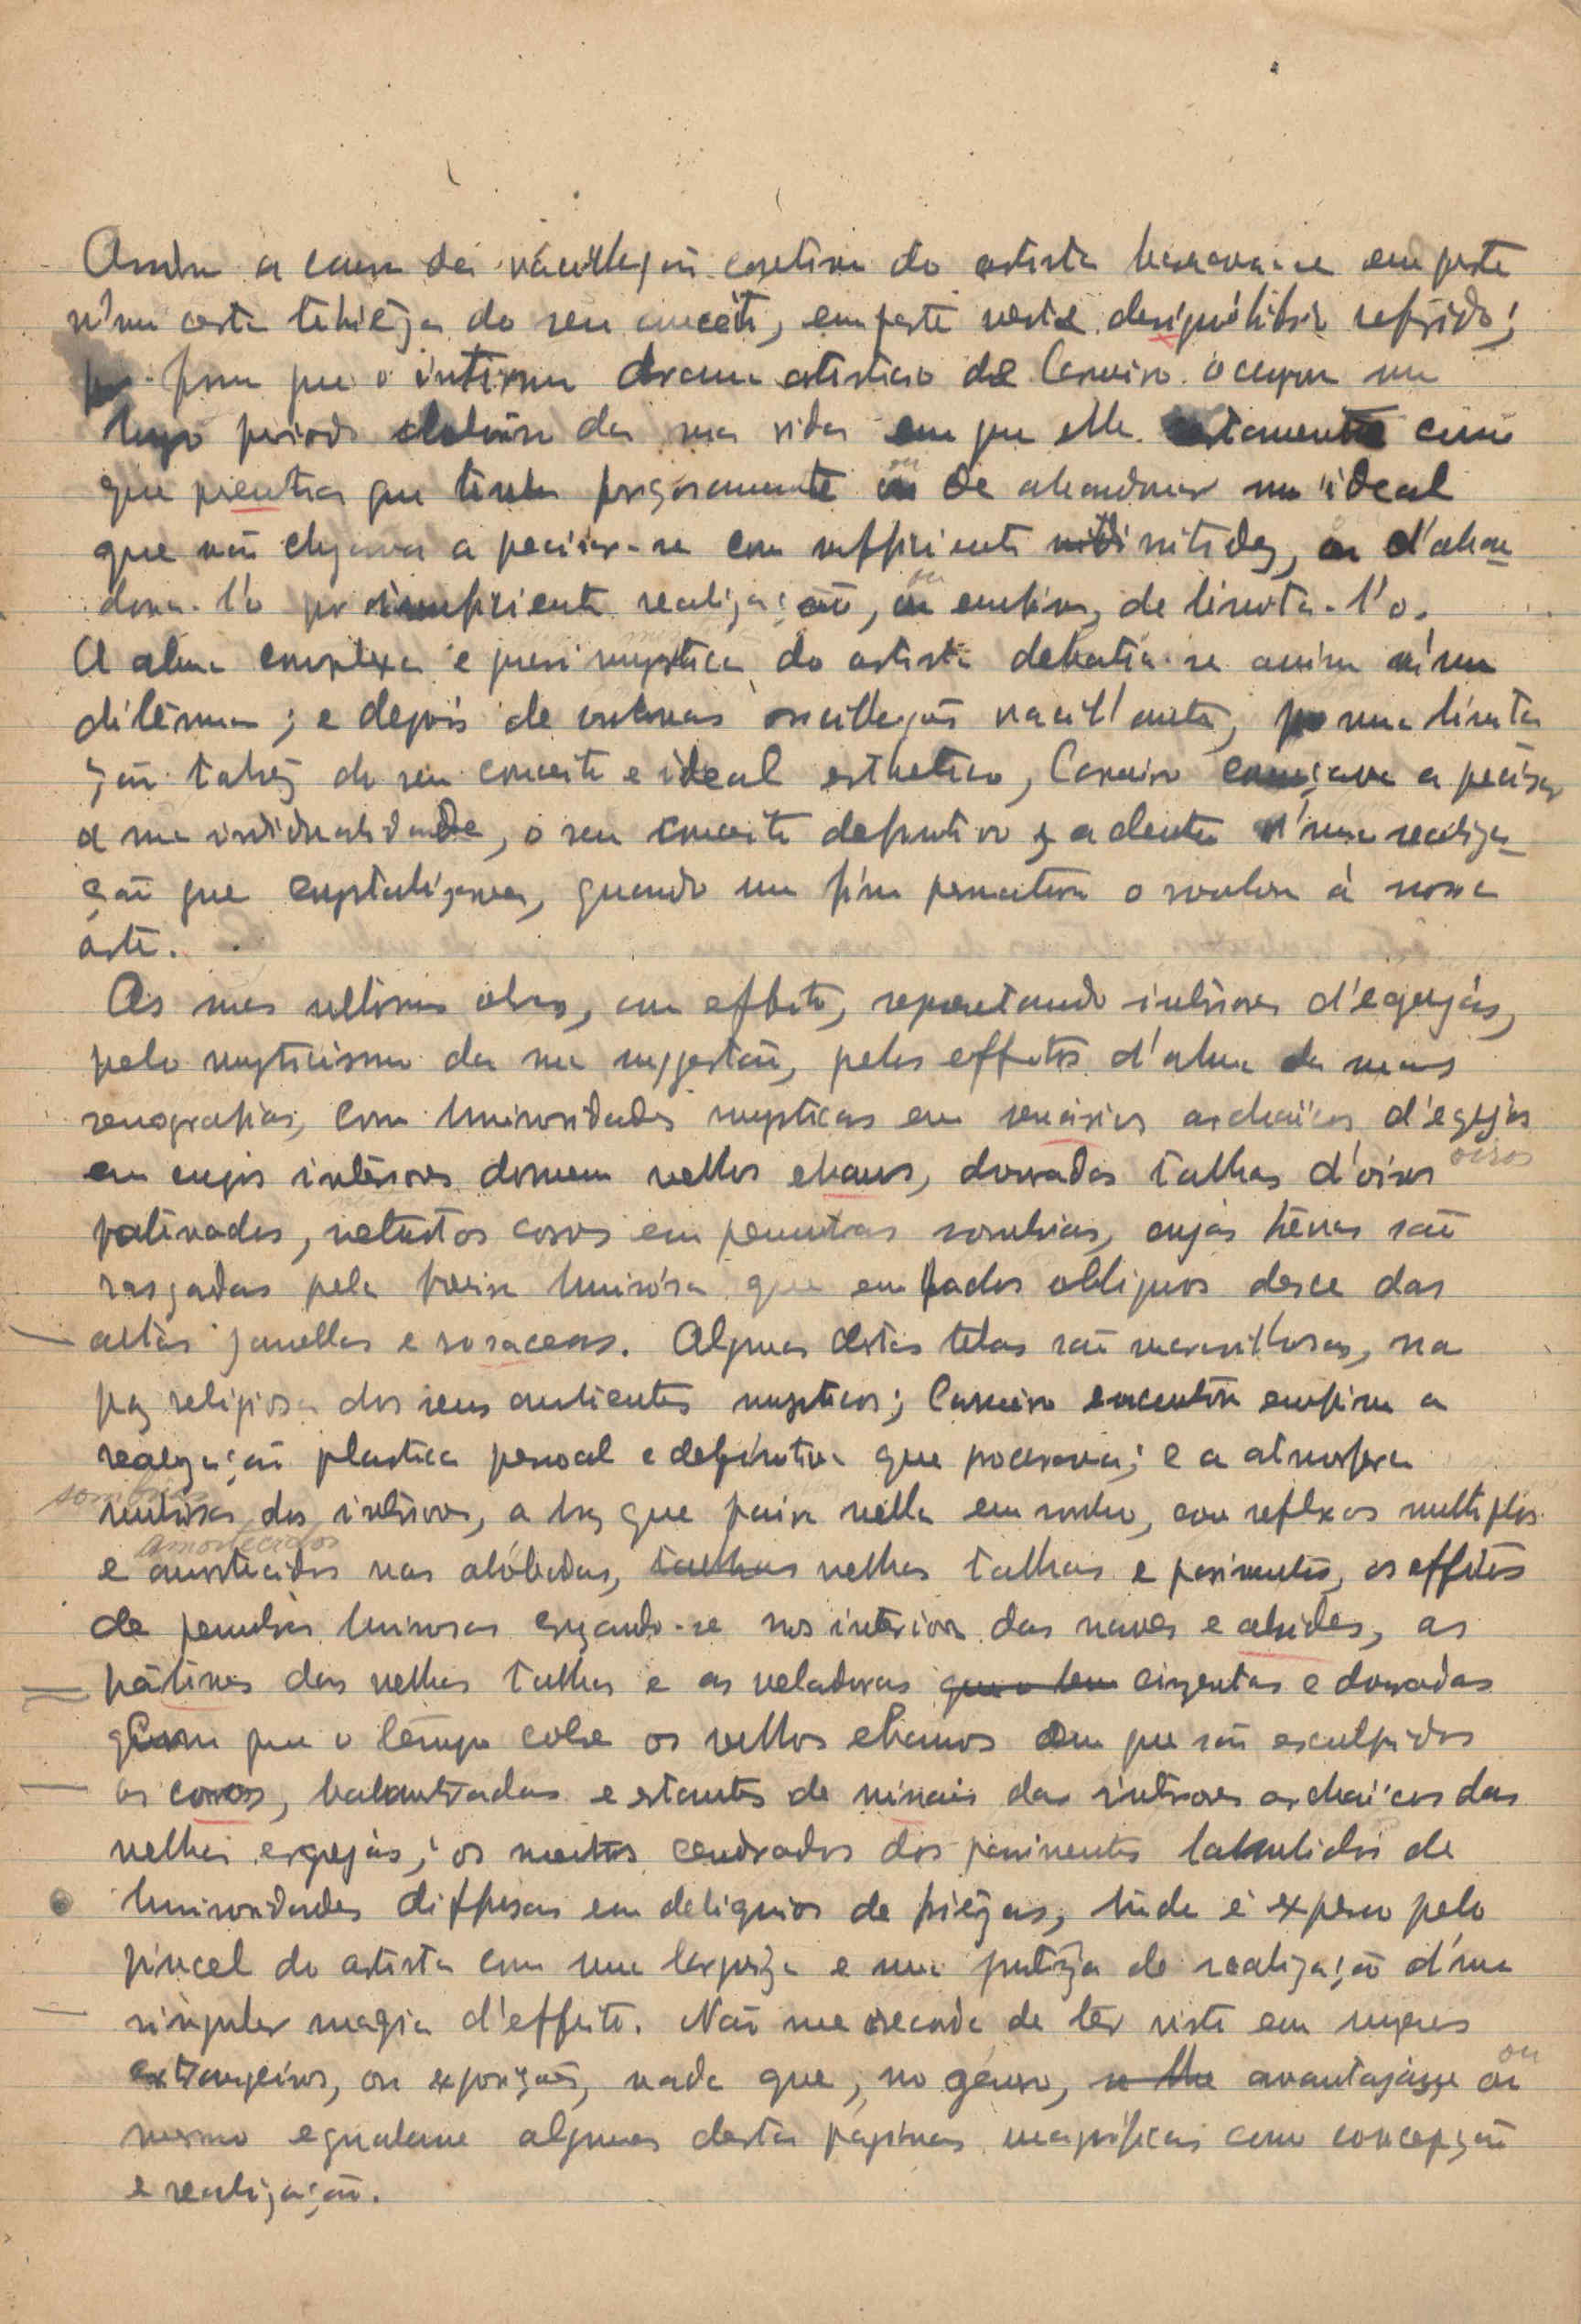 Assim a causa da vacillação do artista em parte
n'uma certa do seu conceito, em parte n'este desiquilibrio referido;
para que o intimo drama artistico de Carneiro occupou um
longo periodo da sua vida em que elle certamente
que tinha forçosamente ou de abandonar um ideal
que não chegava a precisar-se com sufficiente nitidez, ou d'aban-
dona-l'o por insufficiente realização, ou emfim, de limita-l'o.
A alma complexa e quasi mystica do artista debatia-se assim n'um
dilêmma; e depois de oscillação vacillante, por uma limita
ção talvez do seu conceito e ideal esthetico, Carneiro começava a precisar
a sua individualidade, o seu conceito definitivo e adentro n'uma realiza-
ção que crystalizava, quando um fim prematuro o roubou á nossa
arte.
As suas ultimas obras, com effeito, representando interiores d'egrejas,
pelo mysticismo da sua suggestão, pelos effeitos d'alma de suas
scenografias, com luminosidades mysticas em scenários archaicos d'egrejas
em cujos intèriores dormem velhos ebanos, douradas talhas d'oiros oiros
patinados, vetustos coros em penumbras sombrias, cujas trévas são
rasgadas pela poeira luminosa que em fachos obliquos desce das
altas janellas e rosaceas. Algumas destas telas são maravilhosas, na
paz religiosa dos seus ambientes mysticos; Carneiro encontrou emfim a
realização plastica pessoal e definitiva que procurava; e a atmosfera
sombrias dos interiores, a luz que paira nella em sonho, com reflexos multiplos
e amortecidos amortecidos nas abóbadas, talhas velhas talhas e pavimentos, os effeitos
de penumbras luminosas cruzando-se nos interior das naves e absides, as
pátines das velhas talhas e as veladuras que o tem cinzentas e douradas
com que o tempo cobre os velhos ebanos em que são esculpidos
os coros, balaustradas e estantes de missais dos interiores archaicos das
velhas egrejas; os mortos cendrados dos pavimentos de
luminosidades diffusas em deliquios de, tudo é expresso pelo
pincel do artista com uma largueza e uma justeza de realização d'uma
singular magia d'effeito. Não me recordo de ter visto em museus
extrangeiros, ou exposições, nada que, no género, se lhe avantajasse ou ou
mesmo egualasse algumas destas páginas magnificas como concepção
e realização.